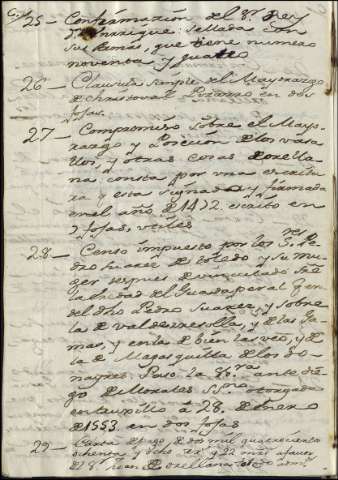 25 - Confirmacion del Sr. Rey
Dn. Enrrique: sellada con
sus Armas, que tiene numero
noventa y quatro
26 - Clausula simple del Mayorazgo
de Christoval Pizarro en dos
fojas.
27 - Compromiso sobre el Mayo-
razgo, y Posecion de los vasa
llos, y otras cosas de orella
na consta por una escritu
ra y esta signada, y firmada
en el año de 1472 escrito en
fojas, utiles
28 - Censo impuesto por los Sres. Pe
dro Suarez de Toledo y su mu
ger despues de vinculado sre
la mitad del Guadaperal q en
del dho Pedro Suarez, y sobre
las de Valdeverolla, y de las Ga
mas, y en la de bien las veo, y de
la de Magasquilla de los do
nayres. Paso la Esra. ante die
go de Morales SSno. otorgada
en taurillo à 28. de Enero
de 1553 en dos fojas
29 - Carta de pago, de dos mil quatrocientos
ochenta y ocho res. y 22 mrs. à favor
de Juan de orellana